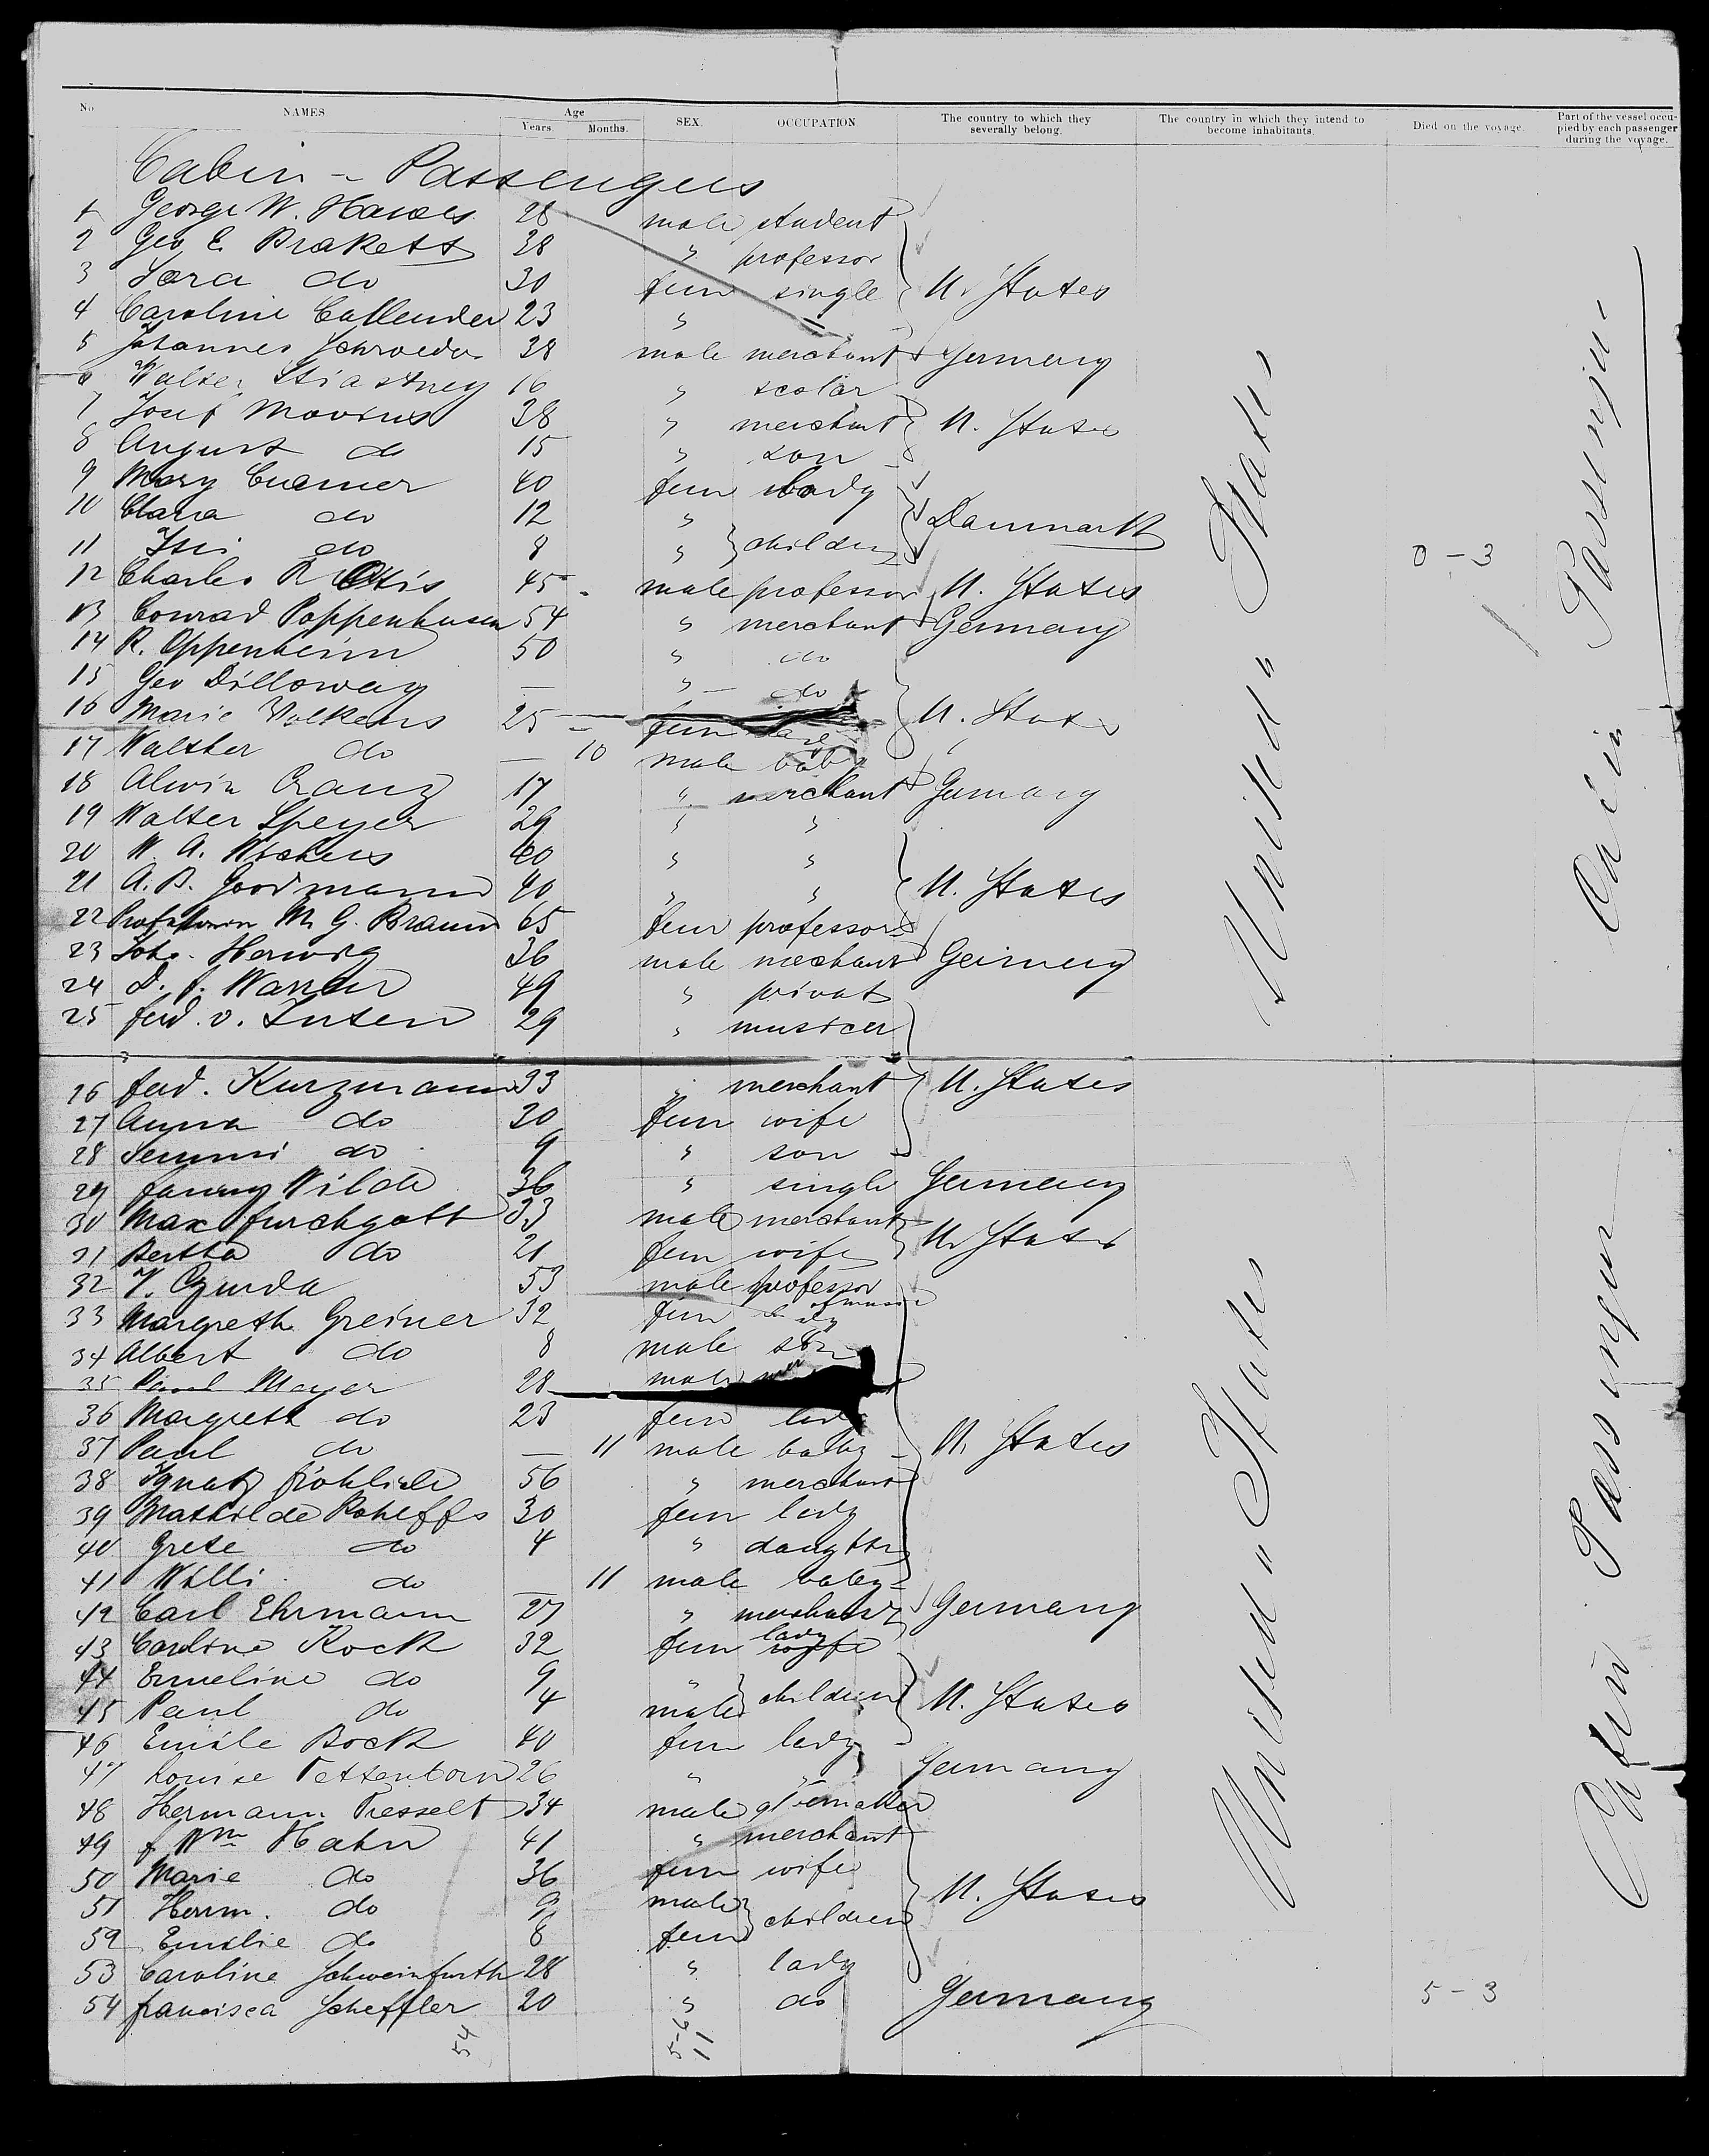 No. NAMES. Age Years. Months. SEX. OCCUPATION. The country to which they severally belong. The country in which they intend to become inhabitants. Died on the voyage. Part of the vessel occupied by each passenger during the voyage.
Cabin - Passengers
1 George W. Hawes 28 male student
2 Geo E. Brakett 38 " professor
3 Sara do 30 fem single U. States
4 Caroline Callender 23 "
5 Johannes Schroeder 38 male merchant Germany
6 Walter Stiastney 16 " scolar
7 Josef Movius 38 " merchant U. States
8 August do 15 " son
9 Mary Cramer 40 fem lady
10 Clara do 12 " Danmark
11 Issi do 8 " children
12 Charles R Otis 45 male professor U. States
13 Conrad Poppenhusen 54 " merchant Germany
14 R. Oppenheim 50 " do
15 Geo Dilloway — " do
16 Marie Volkens 25 fem U. States
17 Walther do — 10 male baby
18 Alwin Cranz 17 " merchant Germany
19 Walter Speyer 29 " "
20 W. A. 40 " "
21 A. B. Goodmann 40 " " U. States
22 M. G. Braun 65 fem professor
23 Joh. Herwig 36 male merchant Germany
24 D. 49 " privat
25 ferd. v. Inten 29 " musicer
26 ferd. Kurzmann 33 " merchant U. States
27 Anna do 30 fem wife
28 do 9 " son
29 fanny Wilde 36 " single Germany
30 Max furchgott 33 male merchant
31 Bertha do 21 fem wife U. States
32 V. Czurda 53 male professor of music
33 Margreth Greiner 32 fem lady
34 Albert do 8 male son
35 Paul Meyer 28 male
36 Margreth do 23 fem lady
37 Paul do — 11 male baby U. States
38 Ignatz fröhlich 56 " merchant
39 Mathilde Roheffs 30 fem lady
40 Grete do 4 " daughter
41 Willi do 11 male baby
42 Carl Ehrmann 27 " merchant Germany
43 Caroline Kock 32 fem lady
44 Emeline do 9 " children
45 Paul do 4 male U. States
46 Emile Bock 40 fem lady
47 Louise Tettenborn 26 " " Germany
48 Hermann Presselt 34 male
49 f. Wm Hahn 41 " merchant
50 Marie do 36 fem wife
51 Herm. do 9 male children U. States
52 Emilie do 8 fem
53 Caroline Schweinfurth 28 " lady
54 francisca Scheffler 20 " do Germany
United States
United States
0 - 3
5 - 3
Cabin Passenger
Cabin Passenger
54
5-6
11